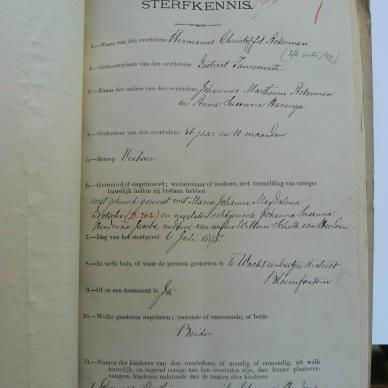 STERFKENNIS.
1.—Naam van den overledene Hermanus Christoffel Ackerman
2.—Geboorteplaats van den overledene District Fauresmith
3.—Naam der ouders van den overledene Johannes Marthinus Ackerman
en Anna Susanna
4.—Ouderdom van den overledene 56 jaar en 10 maanden
5.—Beroep Veeboer
6.—Getrouwd of ongetrouwd; weduwenaar of weduwe, met vermelding van vroeger
huwelijk indien zij bestaan hebben
eerst gehuwd geweest met Maria Johanna Magdalena
en nagelaten echtgenoote Johanna Susanna
Hendrina Jacobs, weduwe van wijlen Willem
7.—Dag van het sterfgeval 6 Juli 1895
8.—In welk huis, of waar de person gestorven is Te district
Bloemfontein
9.—Of er een testament is Ja
10.—Welke goederen nagelaten; roerende of onroerende, of beide
Beide
11.—Namen der kinderen van den overledene, of mondig of onmondig, uit welk
huwelijk, en ingeval eenige van hen overleden zijn, dan hunne plaatsver-
vangers, kinderen nalatende dan de namen dier kinderen